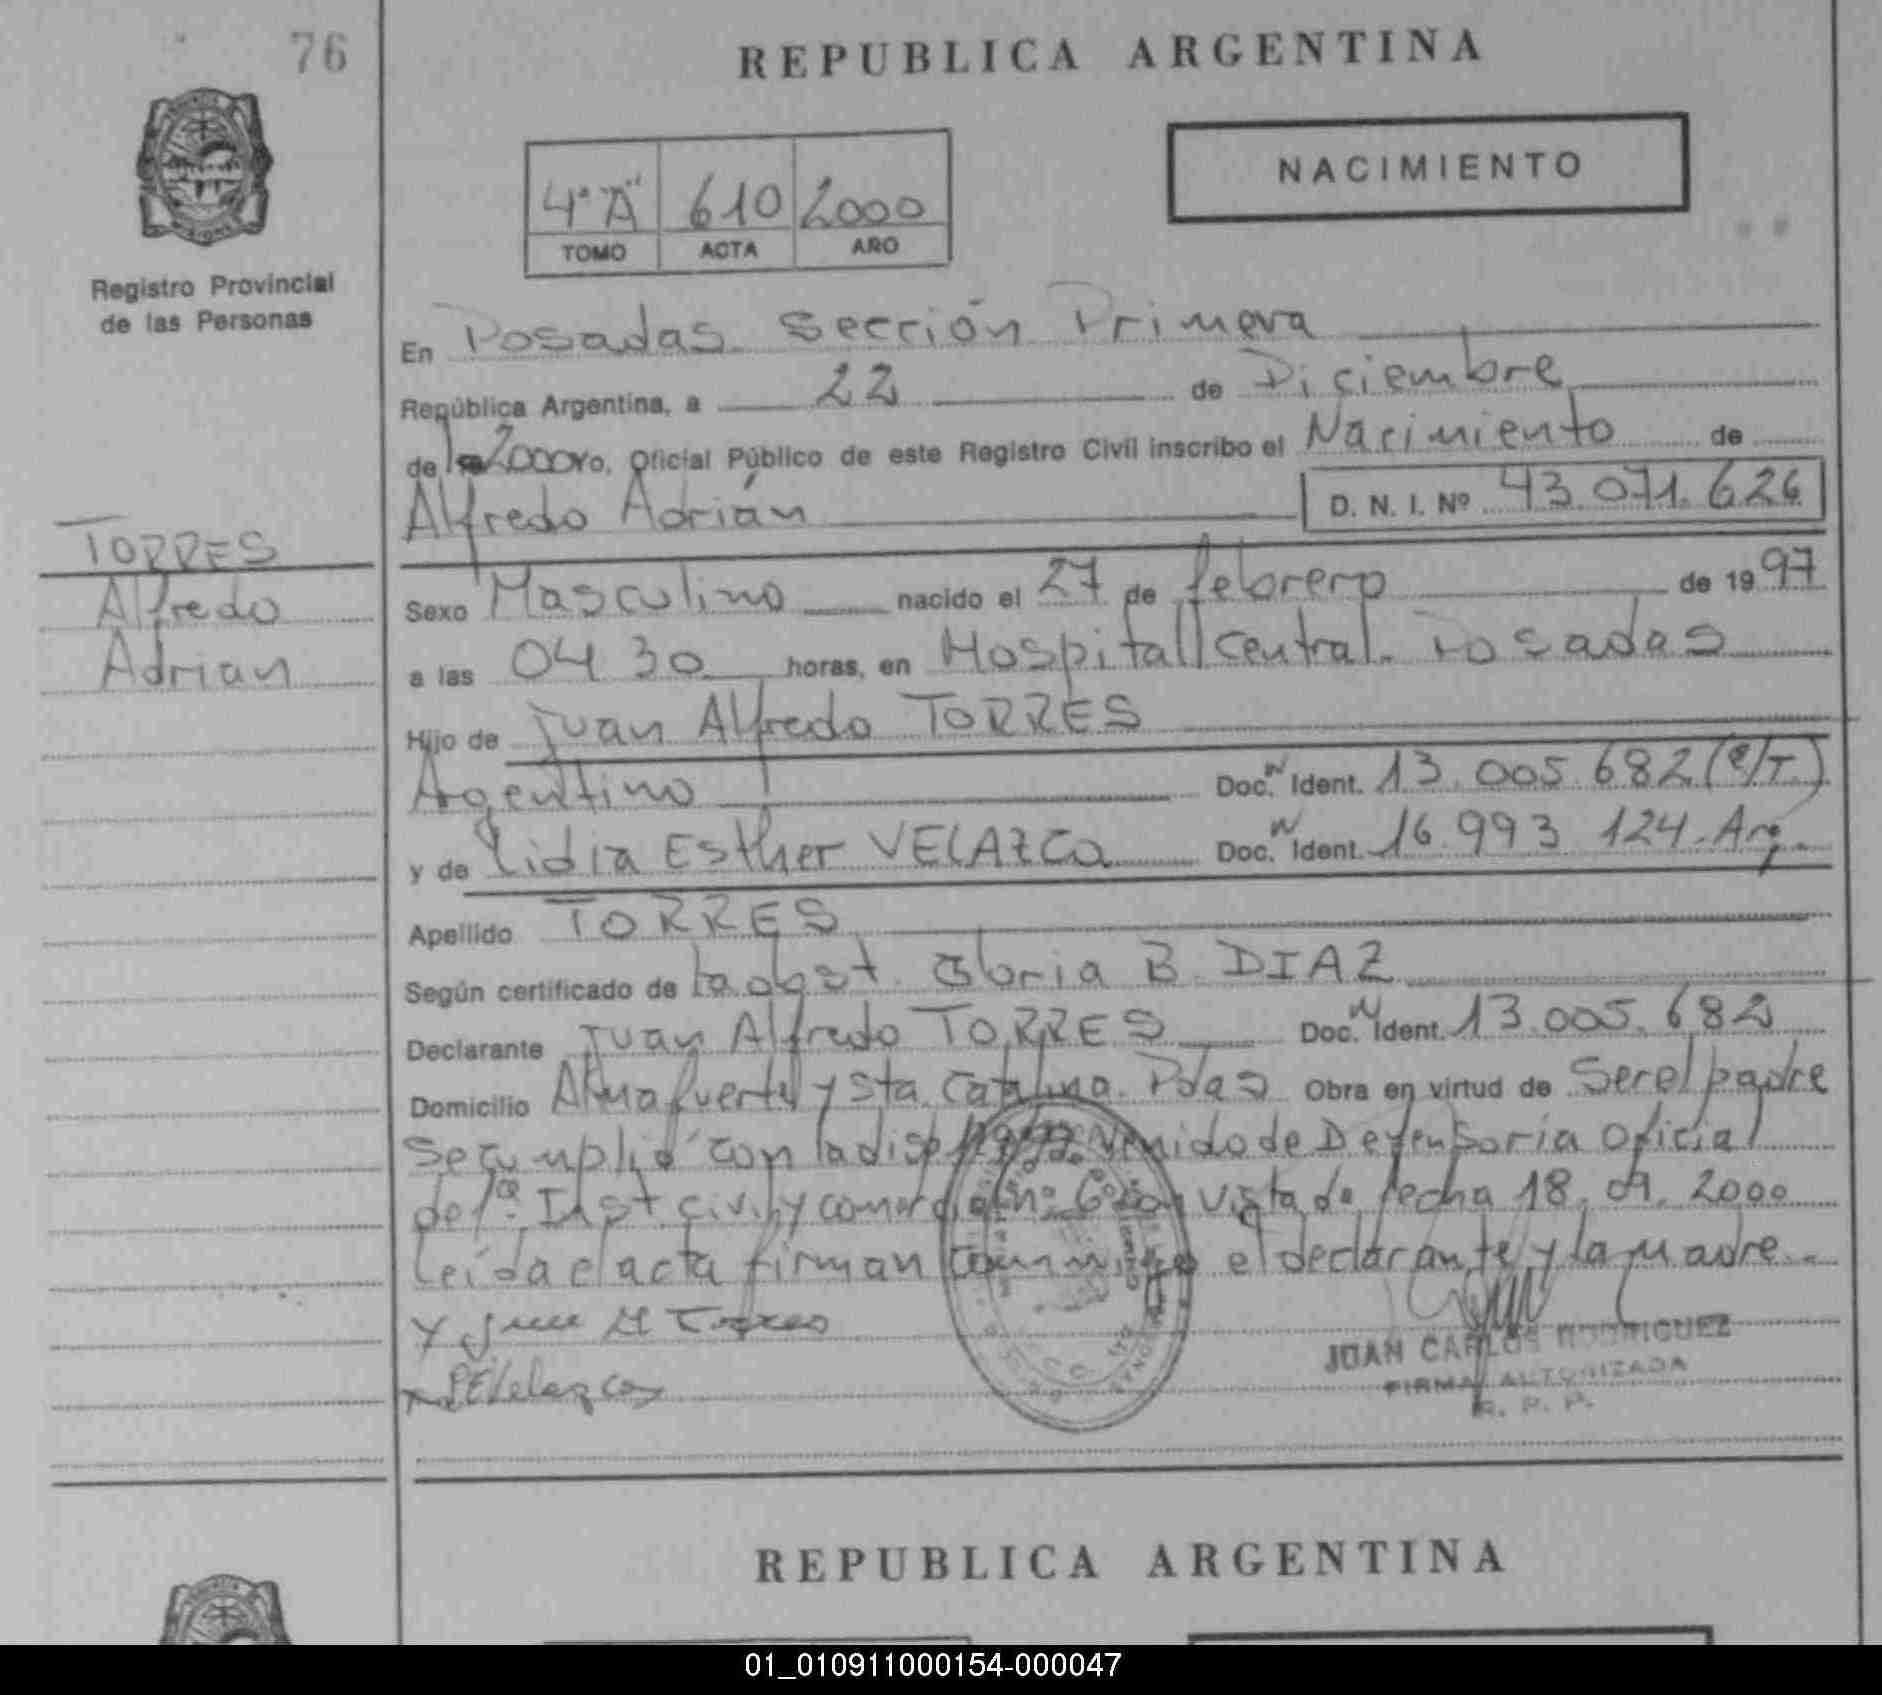 76
REPUBLICA ARGENTINA
NACIMIENTO
4º "A" 610 2000
TOMO ACTA AÑO
Registro Provincial
de las Personas
En Posadas Sección Primera
República Argentina, a 22 de Diciembre
de 2000 Yo, Oficial Público de este Registro Civil inscribo el Nacimiento de
Alfredo Adrián D. N. I. Nº 43.071.626
TORRES
Alfredo
Adrian
Sexo Masculino nacido el 27 de febrero de 1997
a las 04 30 horas, en Hospital Central. Posadas
Hijo de Juan Alfredo TORRES
Argentino Doc. N Ident. 13.005.682 (S/T.)
y de Lidia Esther VELAZCO Doc. N Ident. 16.993 124. Arg.
Apellido TORRES
Según certificado de la obst. Gloria B. DIAZ
Declarante Juan Alfredo TORRES Doc. N Ident. 13.005.682
Domicilio Almafuerte y Sta Catalina. Pdas Obra en virtud de Ser el padre
Se cumplió con la disp de Defensoria Oficial
de 1ª. Inst civil y comercial nº 6 con vista de fecha 18.09.2000
Leída el acta firman conmigo el declarante y la madre.-
JUAN CARLOS RODRIGUEZ
FIRMA AUTORIZADA
R. P. P.
LEVelazco
REPUBLICA ARGENTINA
01_010911000154-000047